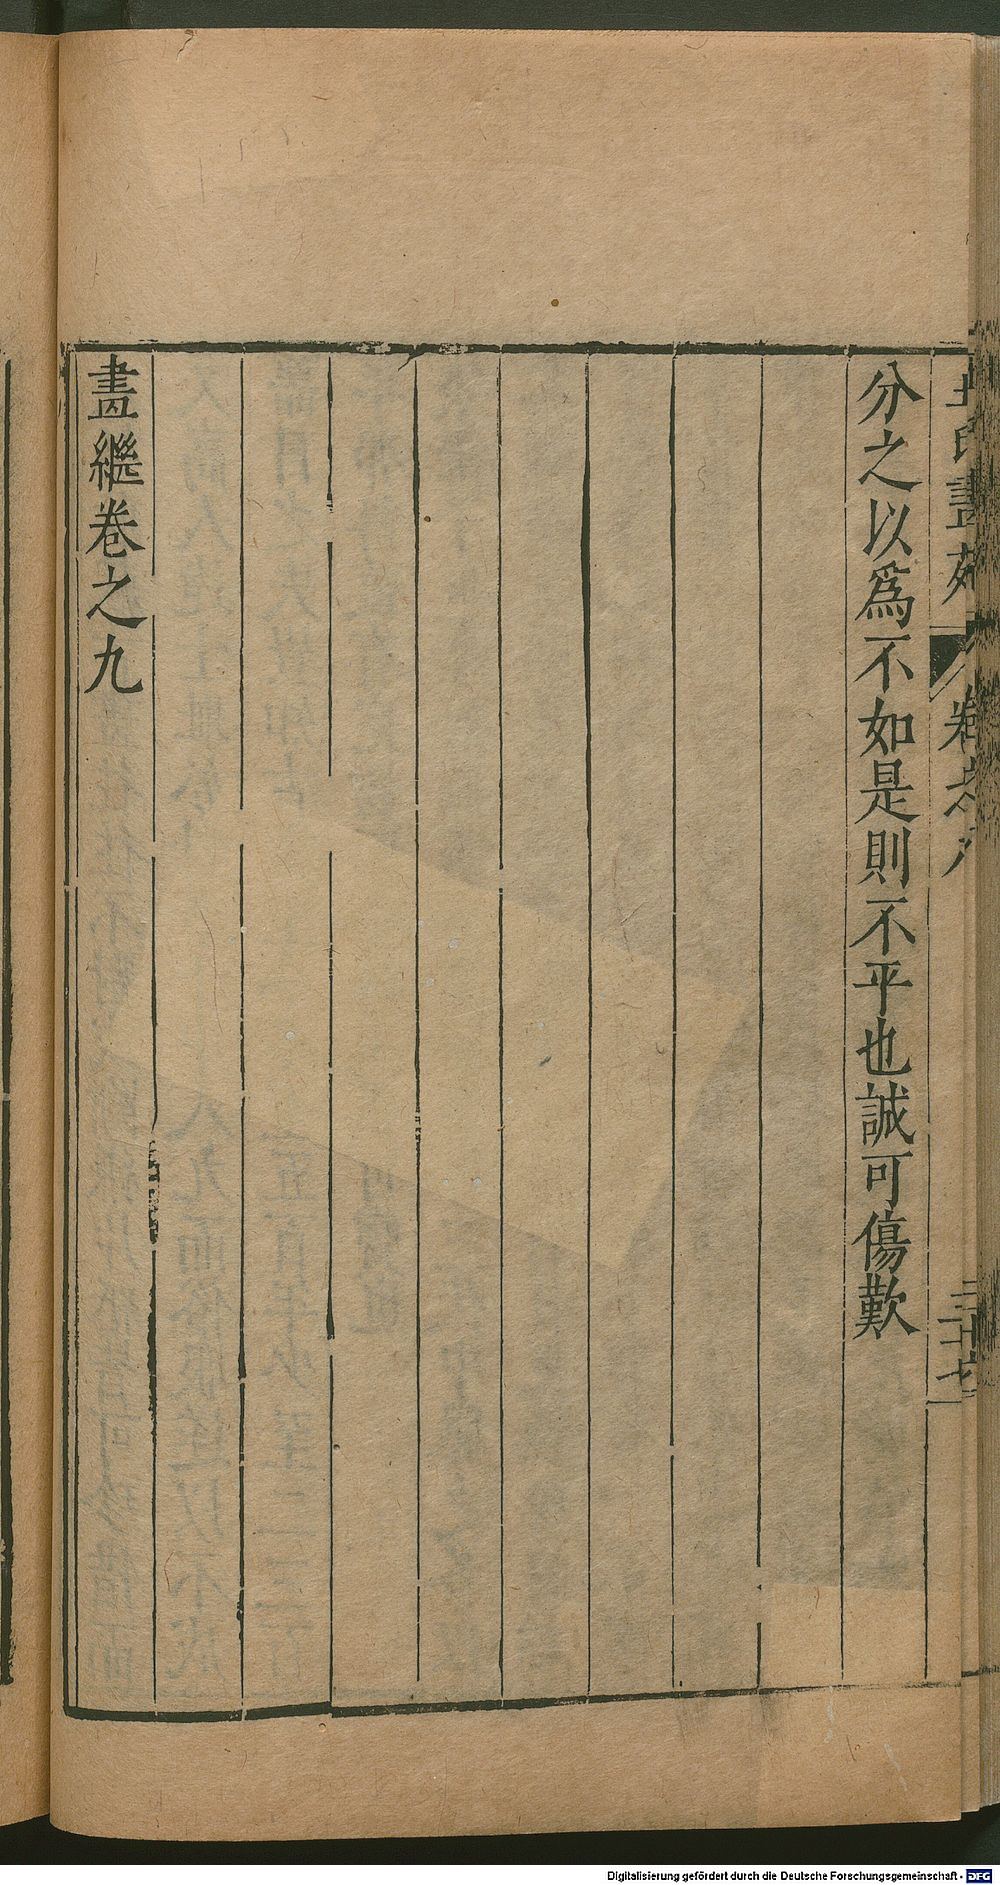 王氏畫苑 卷之八 三十七
分之以爲不如是則不平也誠可傷歎
畫繼卷之九
Digitalisierung gefördert durch die Deutsche Forschungsgemeinschaft - DFG